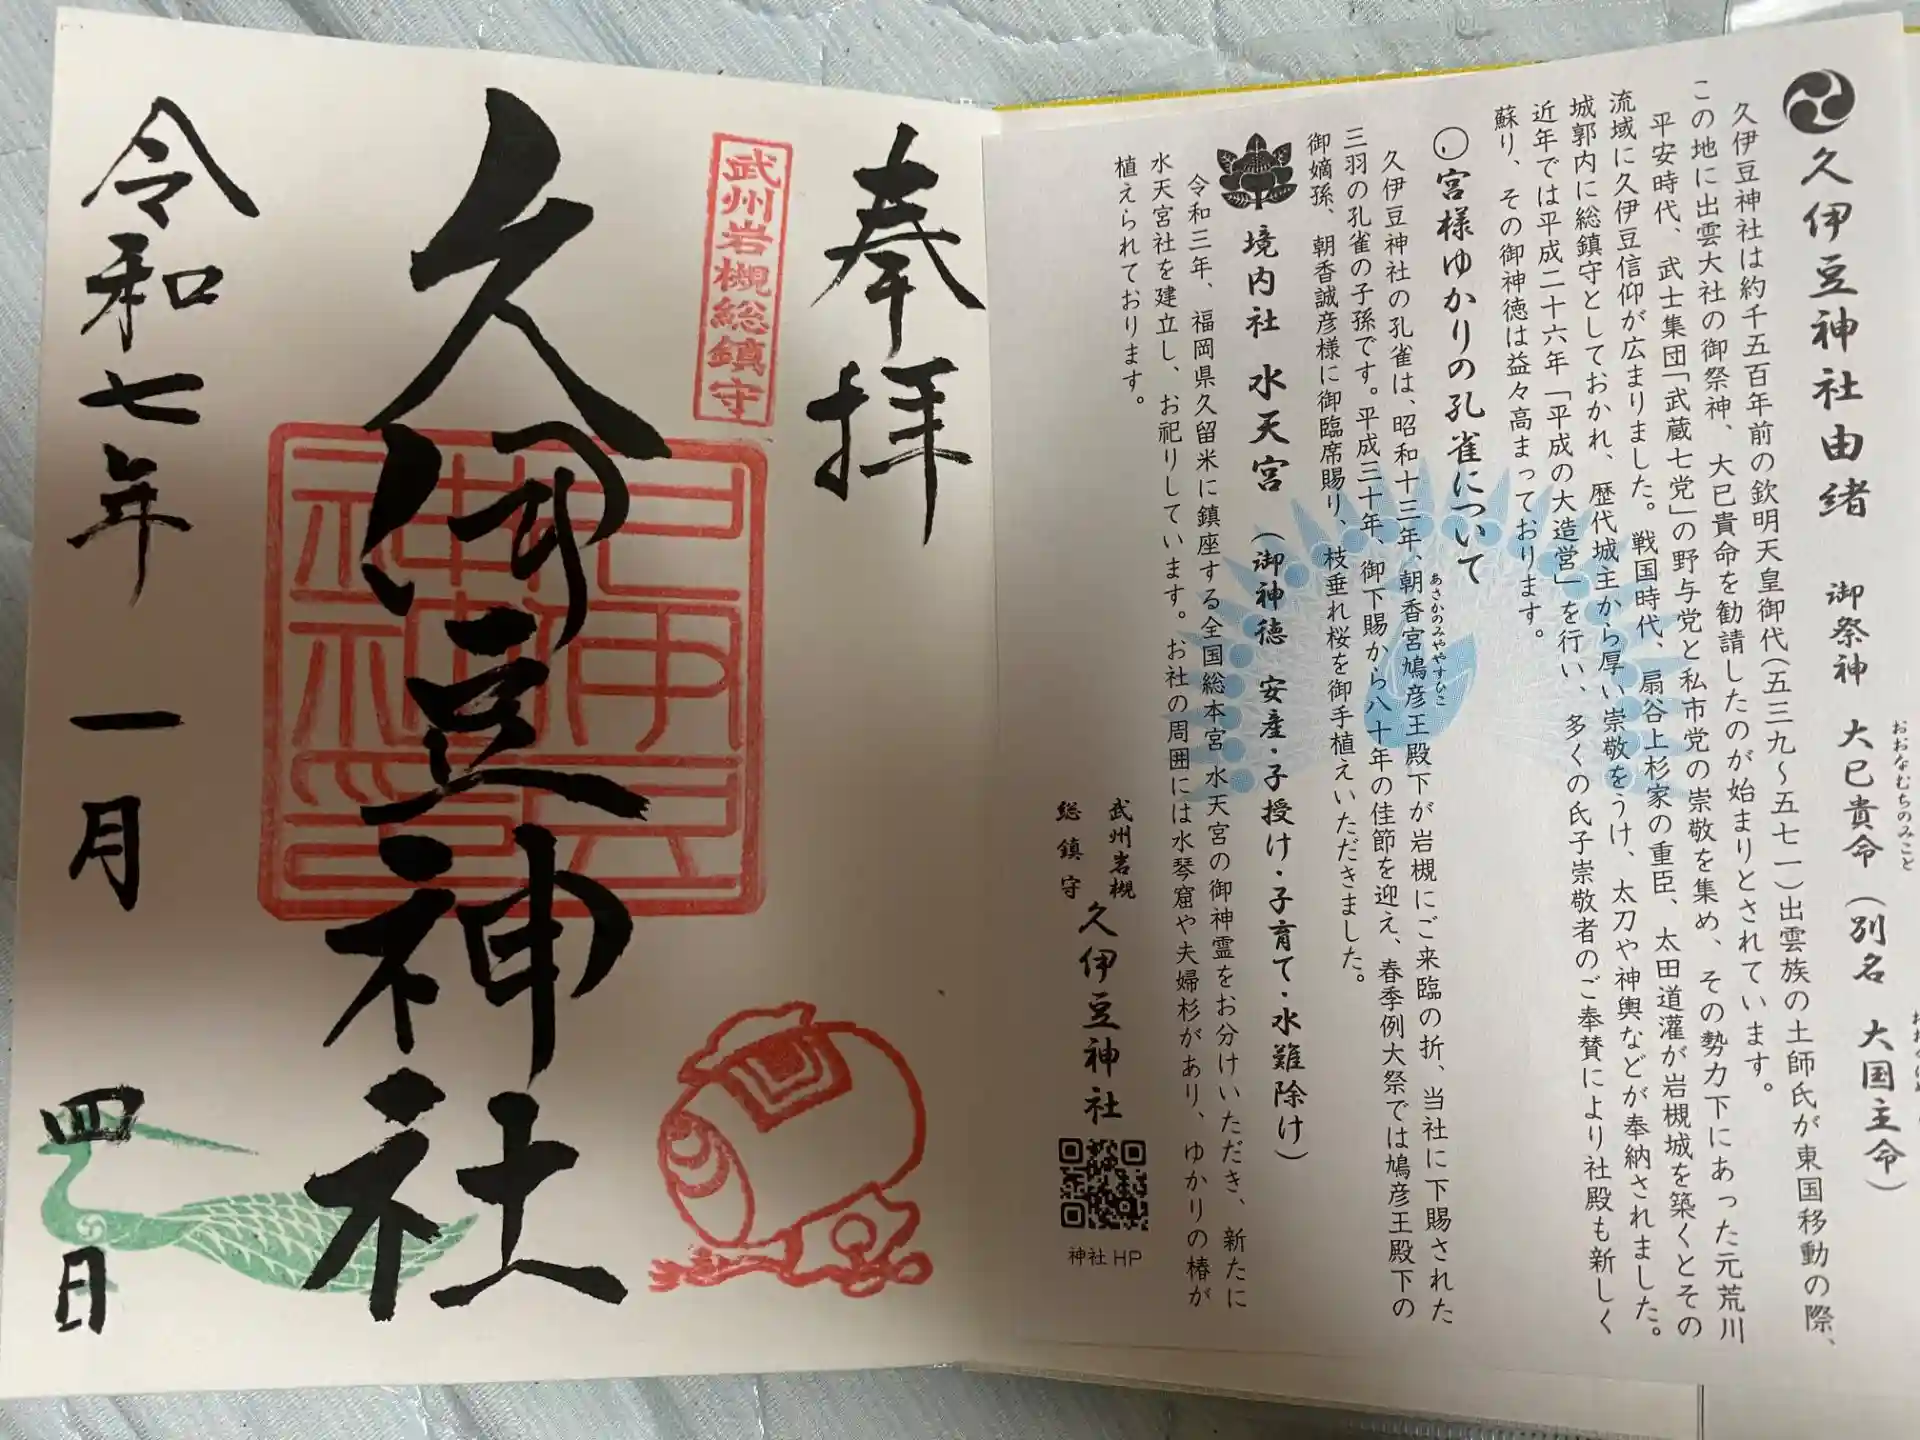 久伊豆神社由緒 御祭神 大已貴命（別名 大国主命）
おおなむちのみこと
久伊豆神社は約千五百年前の欽明天皇御代（五三九〜五七一）出雲族の土師氏が東国移動の際、
この地に出雲大社の御祭神、大已貴命を勧請したのが始まりとされています。
平安時代、武士集団「武蔵七党」の野与党と私市党の崇敬を集め、その勢力下にあった元荒川
流域に久伊豆信仰が広まりました。戦国時代、扇谷上杉家の重臣、太田道灌が岩槻城を築くとその
城郭内に総鎮守としておかれ、歴代城主から厚い崇敬をうけ、太刀や神輿などが奉納されました。
近年では平成二十六年「平成の大造営」を行い、多くの氏子崇敬者のご奉賛により社殿も新しく
蘇り、その御神徳は益々高まっております。
宮様ゆかりの孔雀について
久伊豆神社の孔雀は、昭和十三年、朝香宮鳩彦王殿下が岩槻にご来臨の折、当社に下賜された
あさかのみややすひこ
三羽の孔雀の子孫です。平成三十年、御下賜から八十年の佳節を迎え、春季例大祭では鳩彦王殿下の
御嫡孫、朝香誠彦様に御臨席賜り、枝垂れ桜を御手植えいただきました。
境内社 水天宮 （御神徳 安産・子授け・子育て・水難除け）
令和三年、福岡県久留米に鎮座する全国総本宮 水天宮の御神霊をお分けいただき、新たに
水天宮社を建立し、お祀りしています。お社の周囲には水琴窟や夫婦杉があり、ゆかりの椿が
植えられております。
武州岩槻
総鎮守
久伊豆神社
神社HP
奉拝
武州岩槻総鎮守
久伊豆神社
令和七年一月四日